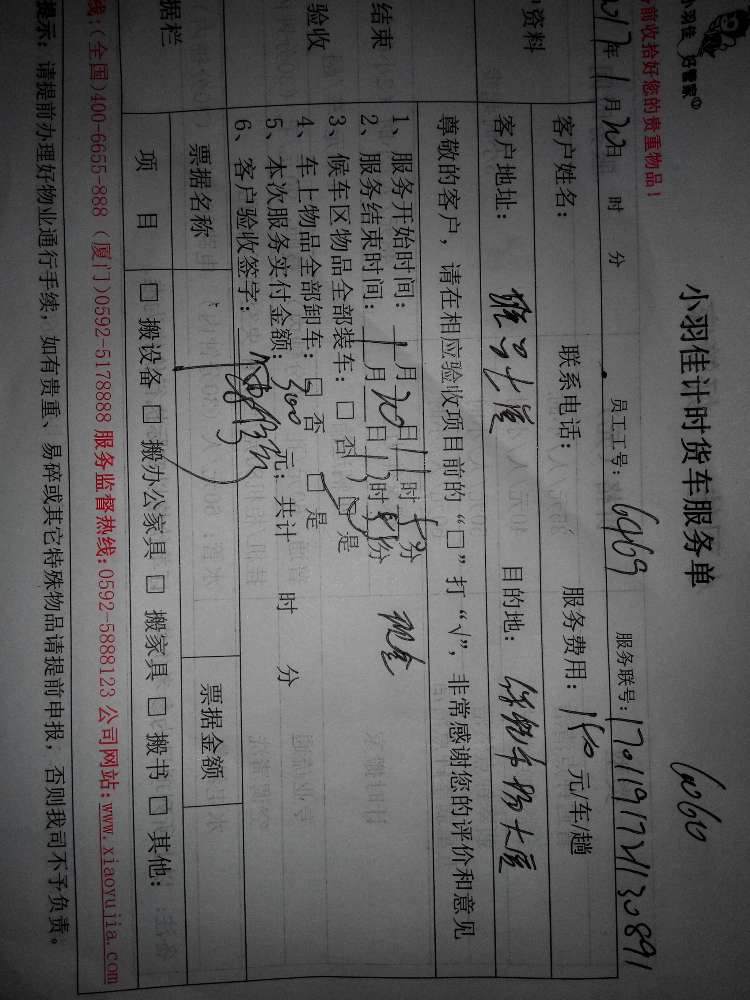 小羽佳 好管家
小羽佳计时货车服务单
60610
前收拾好您的贵重物品！
2017年1月20日 时 分 员工工号：6969 服务联号：170119172130891
客户姓名： 联系电话： 服务费用：150元/车/趟
户资料
客户地址： 大厦 目的地： 大厦
尊敬的客户，请在相应验收项目前的“□”打“√”，非常感谢您的评价和意见
结束
验收
1、服务开始时间：1月20日11时 分 现金
2、服务结束时间：1月20日13时 分
3、候车区物品全部装车：□ 否 □ 是
4、车上物品全部卸车：□ 否 □ 是
5、本次服务实付金额：300元；共计 时 分
6、客户验收签字：
据栏
票据名称 票据金额
项 目 □ 搬设备 □ 搬办公家具 □ 搬家具 □ 搬书 □ 其他：
线:(全国)400-6655-888 (厦门)0592-5178888 服务监督热线:0592-5888123 公司网站:www.xiaoyujia.com
提示：请提前办理好物业通行手续，如有贵重、易碎或其它特殊物品请提前申报，否则我司不予负责。